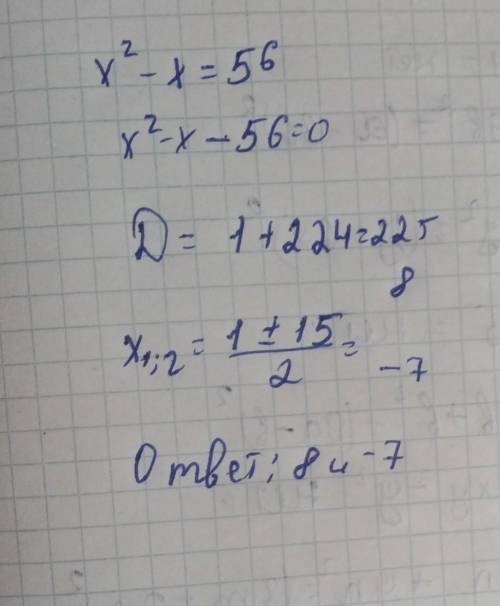 x² - x = 56
x² - x - 56 = 0
D = 1 + 224 = 225
8
x₁;₂ = (1 ± 15)/2 =
-7
Ответ: 8 и -7